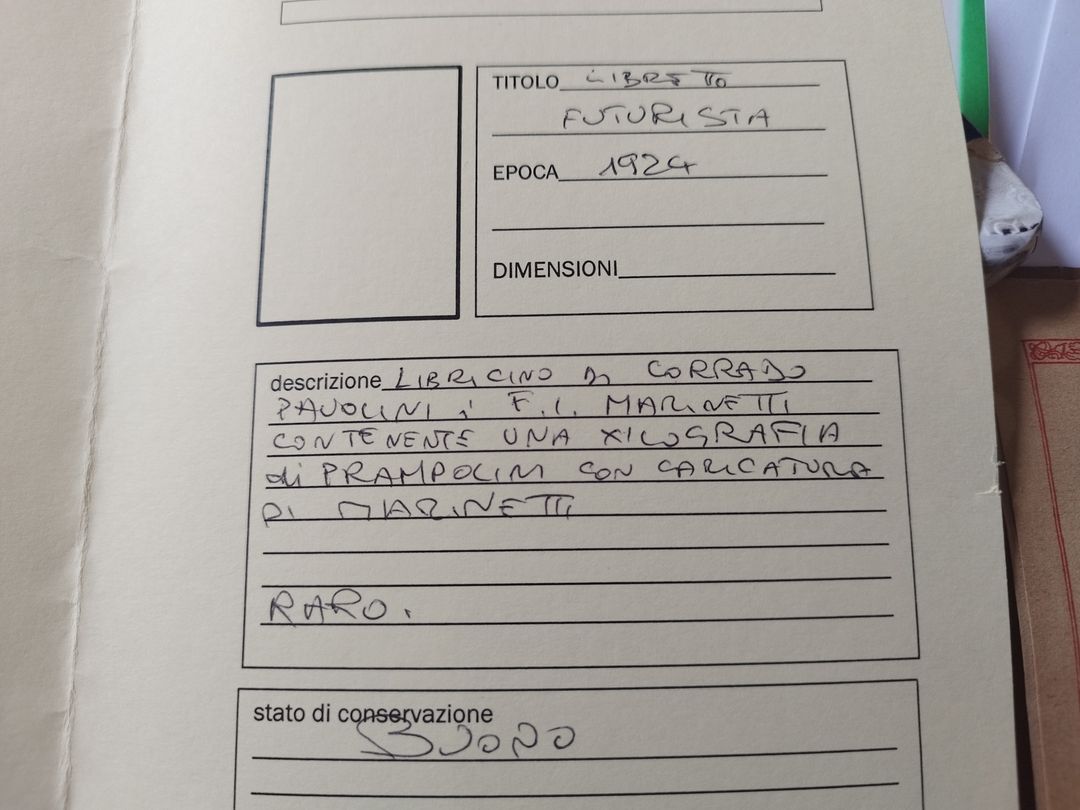 TITOLO LIBRETTO
FUTURISTA
EPOCA 1924
DIMENSIONI
descrizione LIBRICINO DI CORRADO
PAVOLINI : F.T. MARINETTI
CONTENENTE UNA XILOGRAFIA
di PRAMPOLINI CON CARICATURA
DI MARINETTI
RARO.
stato di conservazione
BUONO